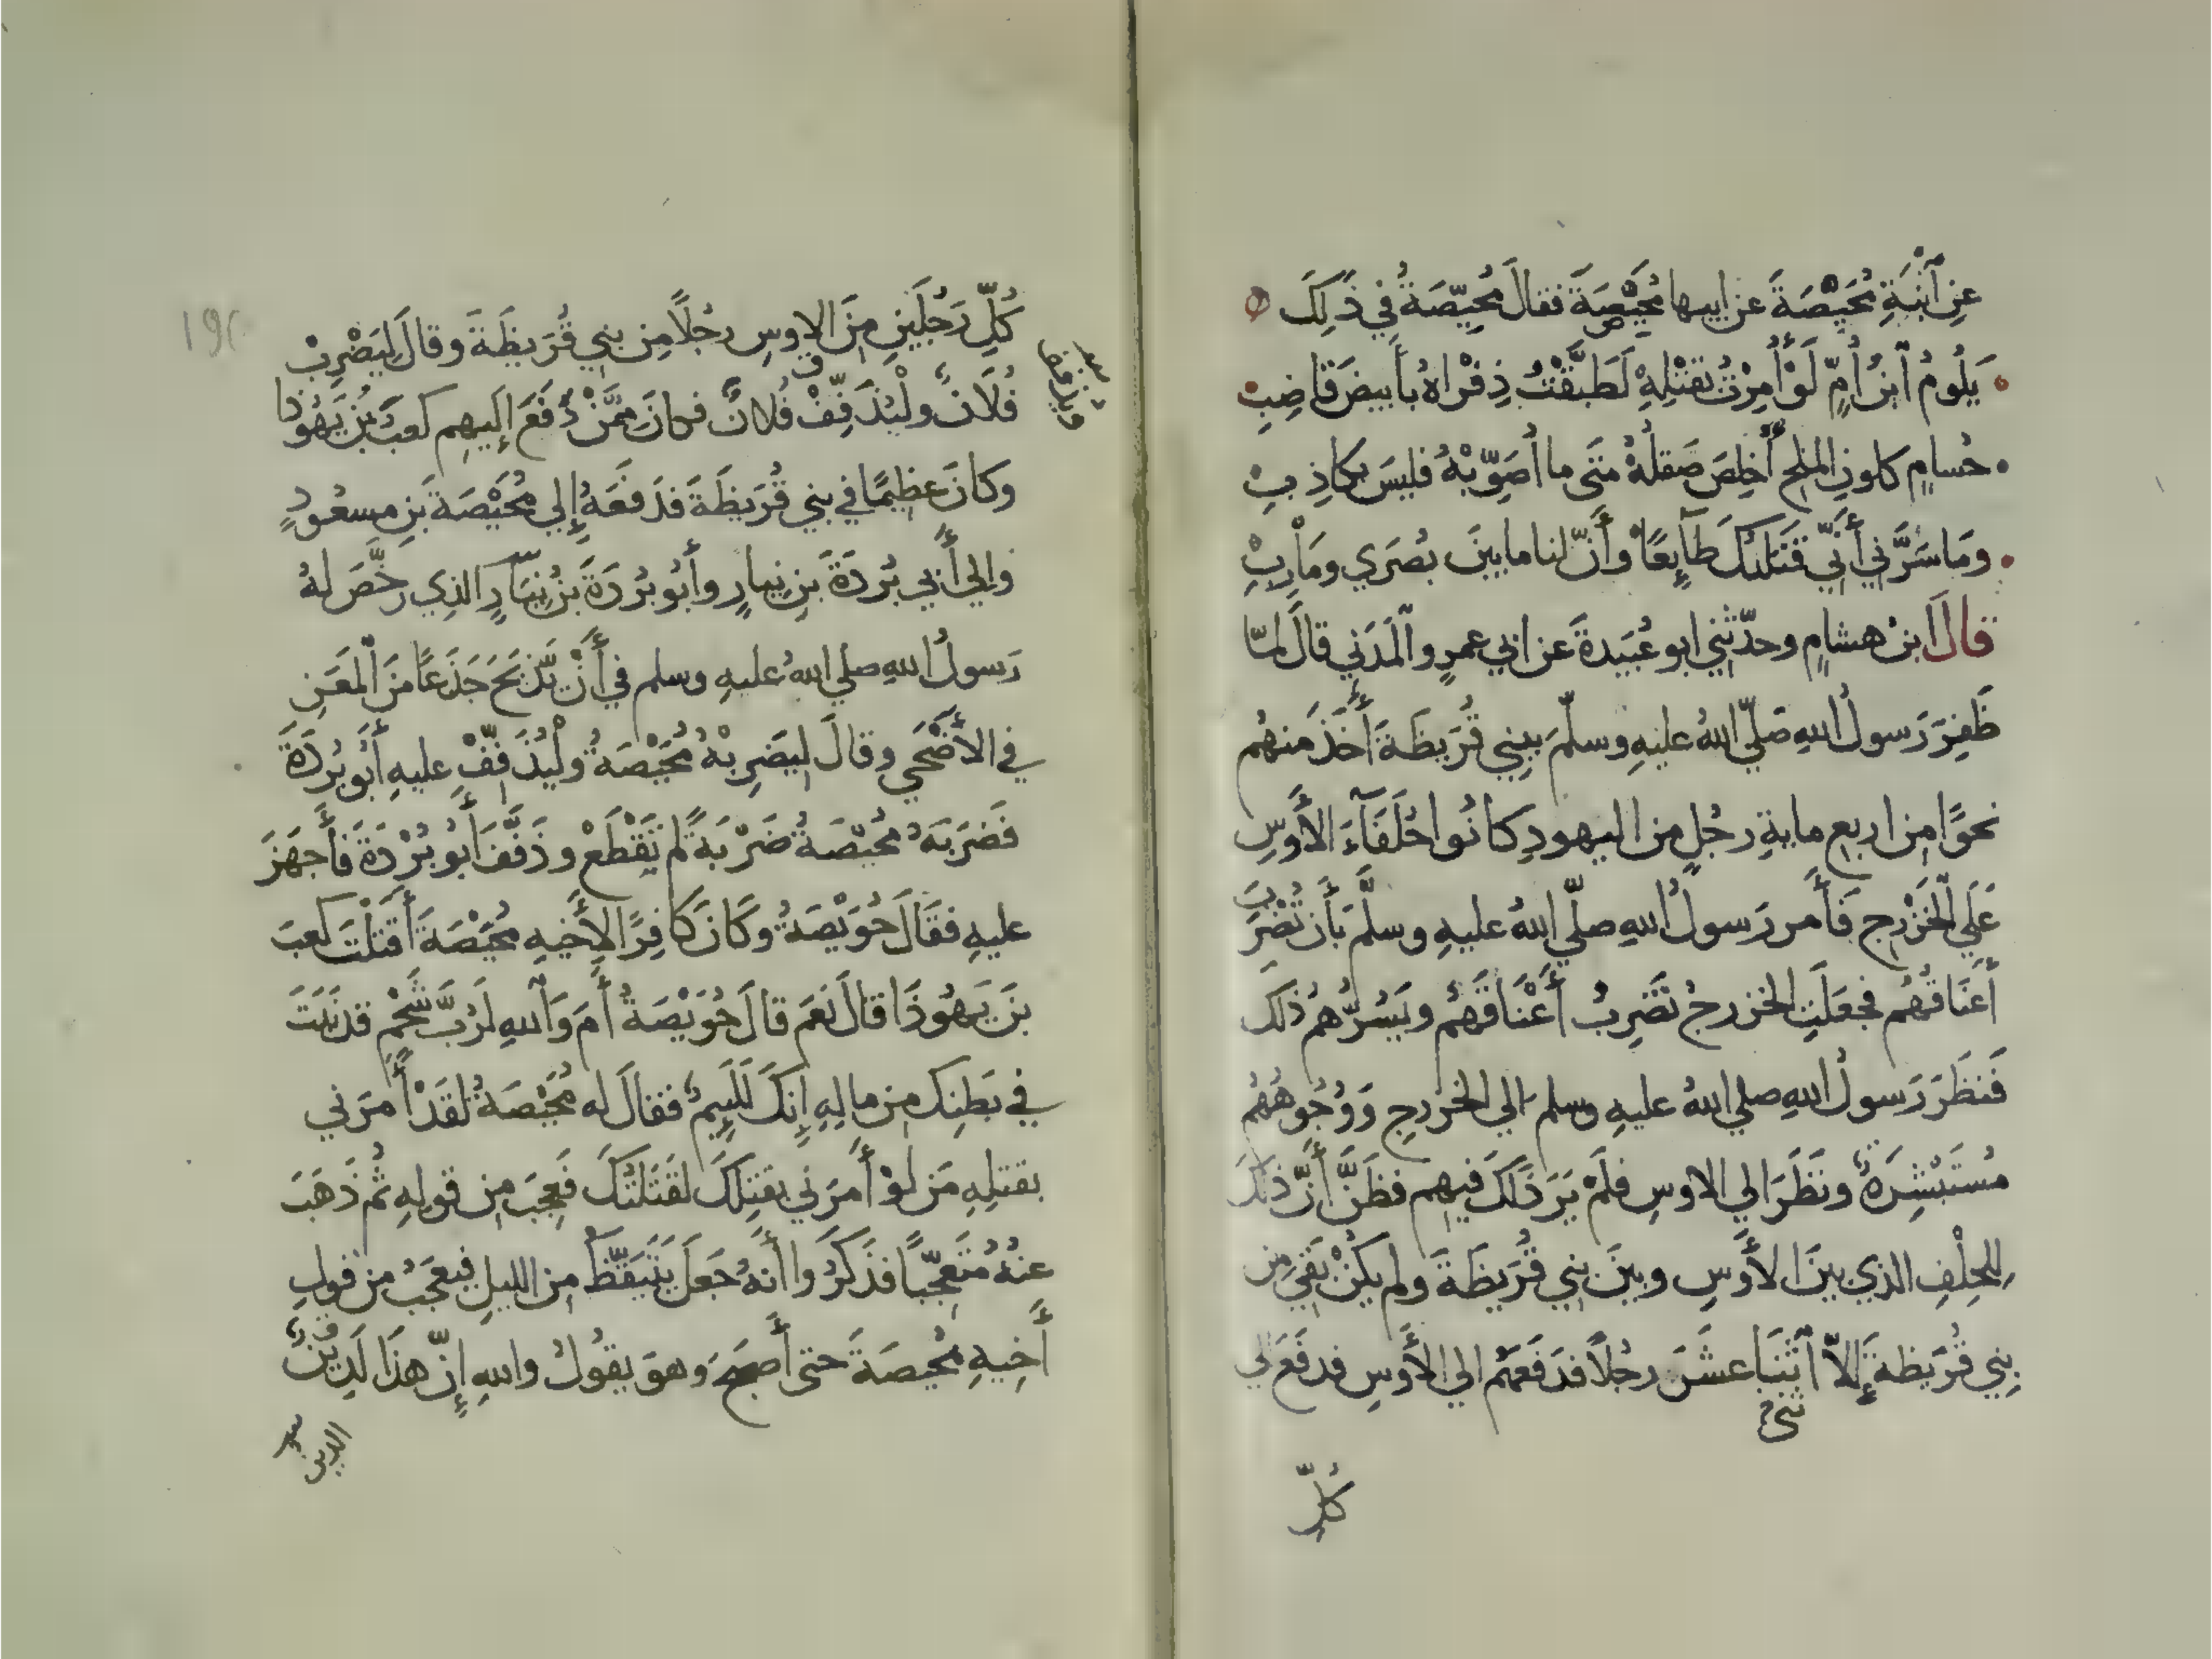 عَنِ ٱبْنَةِ مُحَيْصَةَ عن ابيها مُحَيْصَةَ فقالَ مُحَيِّصَةُ فِي ذَلِكَ
يَلُومُ ٱبنُ أُمِّ لَوْ أُمِرْتُ بقتْلِهِ لَطَبَّقْتُ ذِفْراهُ بأَبيضَ قاضِبِ
حُسامٍ كلونِ الملحِ أُخلِصَ صَقلُهُ متَى ما أُصَوِّبْهُ فليسَ بكاذِبِ
ومَا سَرَّني أَنِّي قَتَلتُكَ طآئِعًا وأَنّ لنا ما بينَ بُصْرَي ومَأْرِبِ
قالَ ابنُ هشامٍ وحدّثني ابو عُبَيدةَ عن ابي عمرٍو ٱلْمَدَنِي قالَ لمّا
ظَفِرَ رَسولُ اللهِ صَلّي اللهُ عليهِ وسلّمَ ببني قُرَيظَةَ أَخَذَ منهُم
نحوًا مِن اربعِ مايةِ رجُلٍ من اليهودِ كانُوا حُلَفَآءَ الأَوسِ
عَلَي الْخَزْرجِ فَأَمر رَسولُ اللهِ صلّي اللهُ عليهِ وسلَّمَ بَأَن تُضْرَبَ
أَعنَاقُهُم فجعَلَتِ الخزرجُ تَضرِبُ أَعْنَاقَهُم ويَسُرُّهُم ذَلكَ
فَنظَرَ رَسولُ اللهِ صلي اللهُ عليهِ وسلم الي الخزرجِ وَوُجُوهُهُم
مُستَبْشِرَةٌ ونَظَرَ الي الاوسِ فلَمْ يَرَ ذَلَكَ فيهِم فظَنَّ أَنّ ذلكَ
لِلحِلْفِ الذي بينَ الأَوسِ وبينَ بني قُرَيظَةَ ولم يكُنْ بَقِيَ مِن
بني قُرَيظةَ إِلاّ ٱثنَا عشَرَ رجُلاً فدَفَعَهُم الي الأَوسِ فدفَعَ الي
ثني
كُلِّ
كُلِّ رَجُلَينِ مِنَ الاوسِ رجُلًا مِن بني قُرَيظَةَ وقالَ لِيَضْرِبْ
فُلَانٌ ولْيُذَفِّفْ فُلانٌ فكانَ مِمَّنْ دُفَعَ إِلَيهِم كعبُ بنُ يَهُوذا
وكانَ عظِيمًا في بني قُرَيظَةَ فدَفَعَهُ إِلي مُحَيْصَةَ بنِ مسعُودٍ
وإلي أَبي بُردَةَ بنِ نِيارٍ وأَبُو بُرْدَةَ بنُ نِيَارٍ الذِي رَخَّصَ لهُ
رَسولُ اللهِ صلي اللهُ عليهِ وسلم في أَنْ يَذْبَحَ جَذَعًا مِنَ ٱلْمَعَزِ
في الأَضْحَي وقالَ لِيَضرِبْهُ مُحَيْصَةُ ولْيُذَفِّفْ عليهِ أَبُو بُردَةَ
فَضرَبَهُ مُحَيِّصَةُ ضَرْبَةً لم تَقْطَعْ وذَفَّفَ أَبُو بُرْدَةَ فأَجهَزَ
عليهِ فقَالَ حُوَيْصَةُ وكَانَ كافِرًا لِأَخيهِ مُحَيْصَةَ أَقتَلْتَ كعبَ
بنَ يَهُوذَا قالَ نَعَم قالَ حُوَيْصَةُ أَمَ وَٱللهِ لَرُبَّ شَحْمٍ قد نَبَتَ
في بَطنِكَ مِن مالِهِ إِنكَ لَلَئِيمٌ فقالَ له مُحَيْصَةُ لَقَدْ أَمرَني
بقتلِهِ مَن لوْ أَمرَني بقتِلكَ لقتَلتُكَ فَعِجَبَ مِن قولِهِ ثُم ذَهَبَ
عنْهُ مُتَعجِّبًا فذَكَرُوا أَنهُ جَعلَ يَتَيَقَّظُ مِن الليلِ فيَعجَبُ من قولِ
أَخِيهِ مُحَيصَةَ حتى أَصبَحَ وهوَ يقُولُ واللهِ إِنّ هذَا لَدِينٌ
الدين